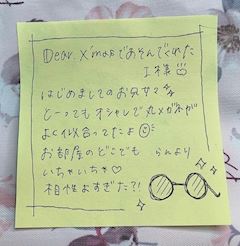 Dear. X'masであそんでくれた
I様
はじめましてのお兄サマ
とーってもオシャレで丸メガネが
よく似合ってたよ
お部屋のどこでも
いちゃいちゃ♡
相性よすぎた?!
らんより